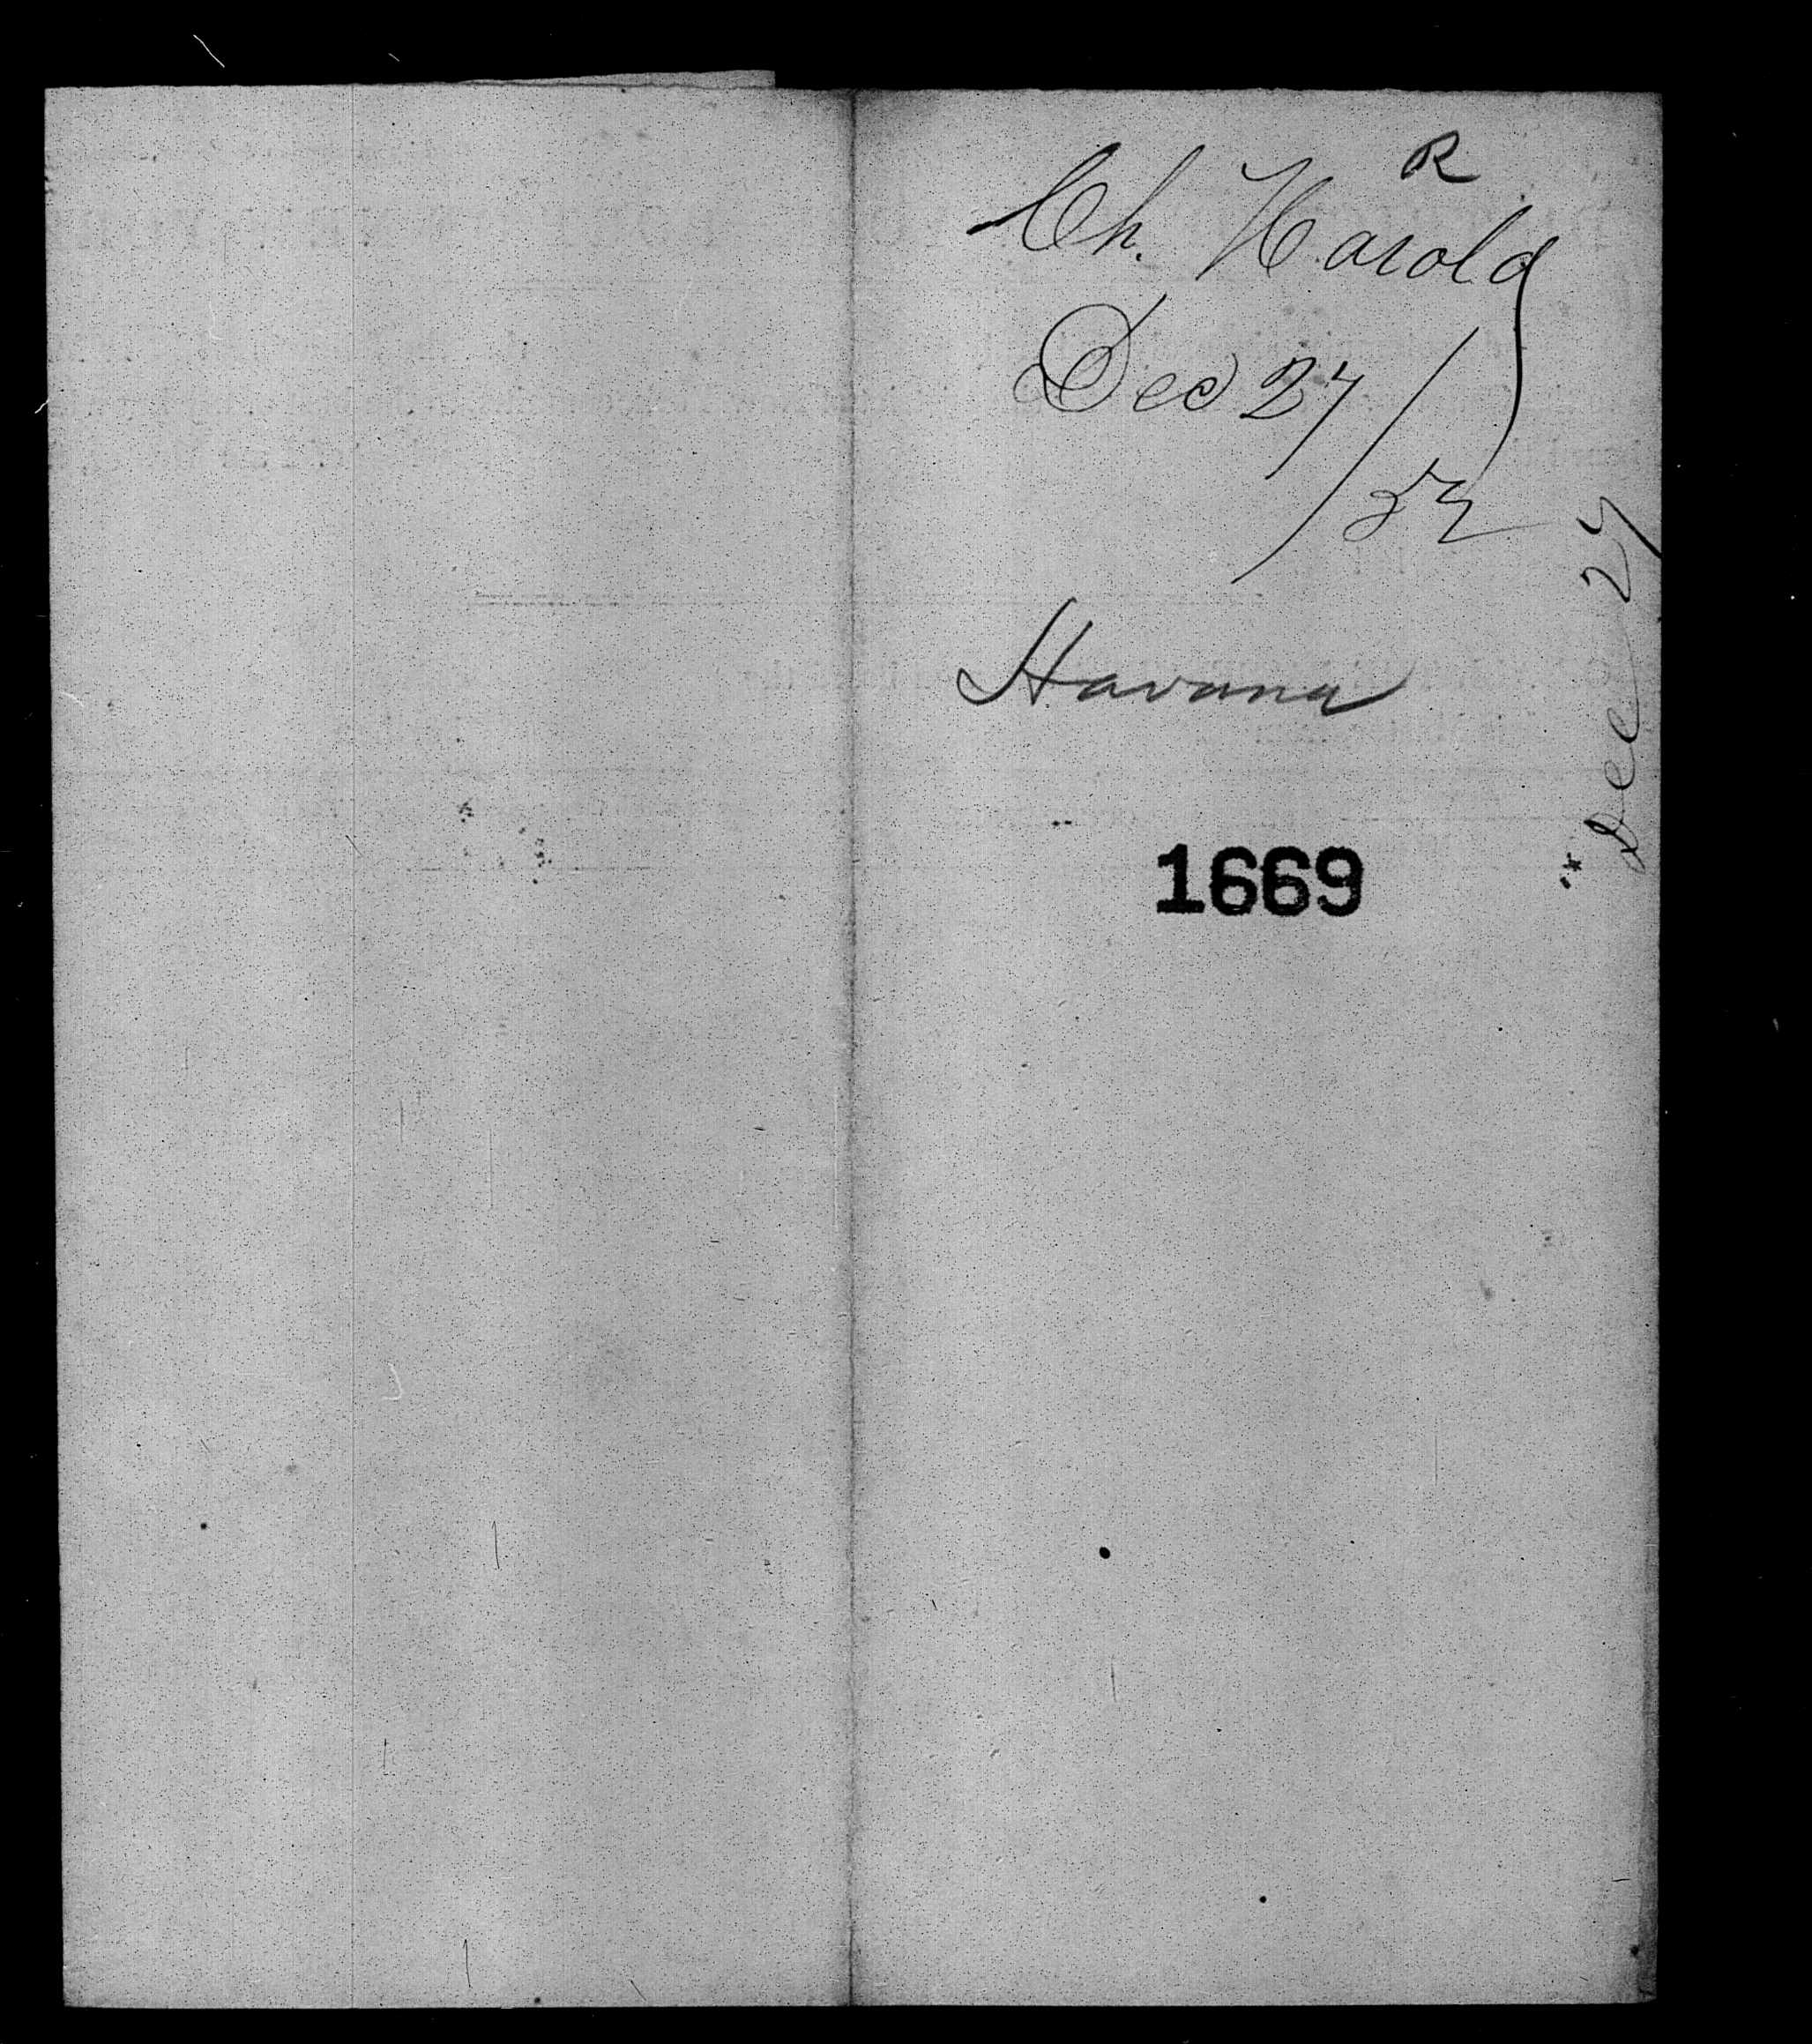 R
Ch. Harold
Dec 27/52
Havana
1669
Dec 27